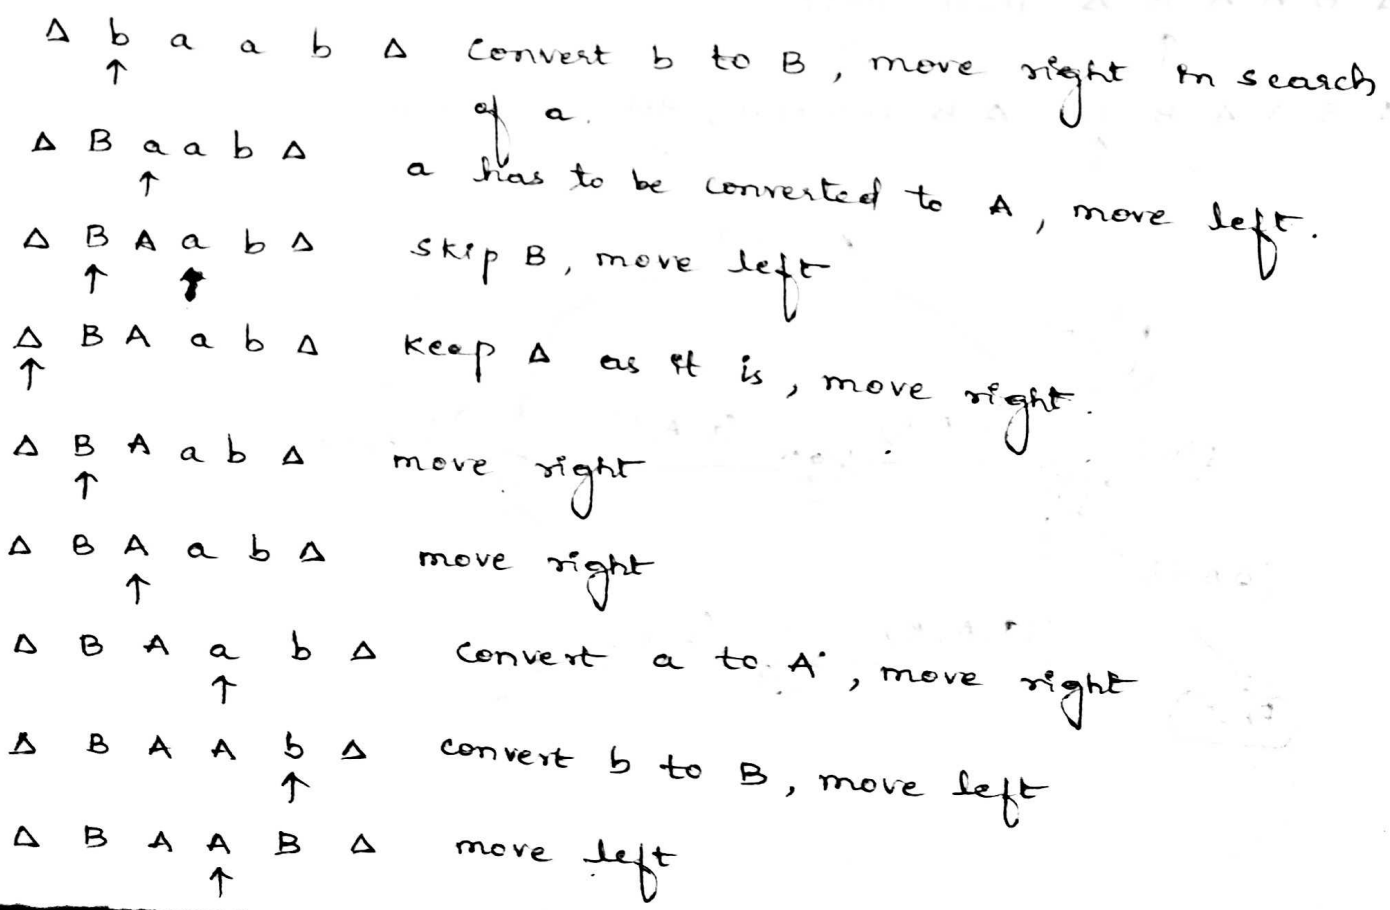 Δ b a a b Δ convert b to B, move right in search
↑ of a.
Δ B a a b Δ a has to be converted to A, move left.
↑
Δ B A a b Δ skip B, move left
↑ ↑
Δ B A a b Δ keep Δ as it is, move right.
↑
Δ B A a b Δ move right
↑
Δ B A a b Δ move right
↑
Δ B A a b Δ convert a to A, move right
↑
Δ B A A b Δ convert b to B, move left
↑
Δ B A A B Δ move left
↑